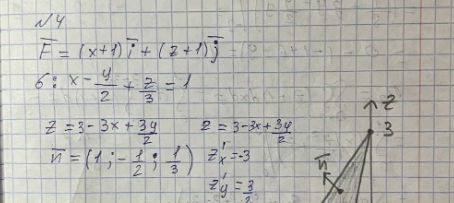 №4
F̅ = (x+1)i̅ + (z+1)j̅
б: x - y/2 + z/3 = 1
z = 3-3x+3y/2 z = 3-3x+3y/2
n̅ = (1; -1/2; 1/3) z'x = -3
z'y = 3/2
z
3
n̅